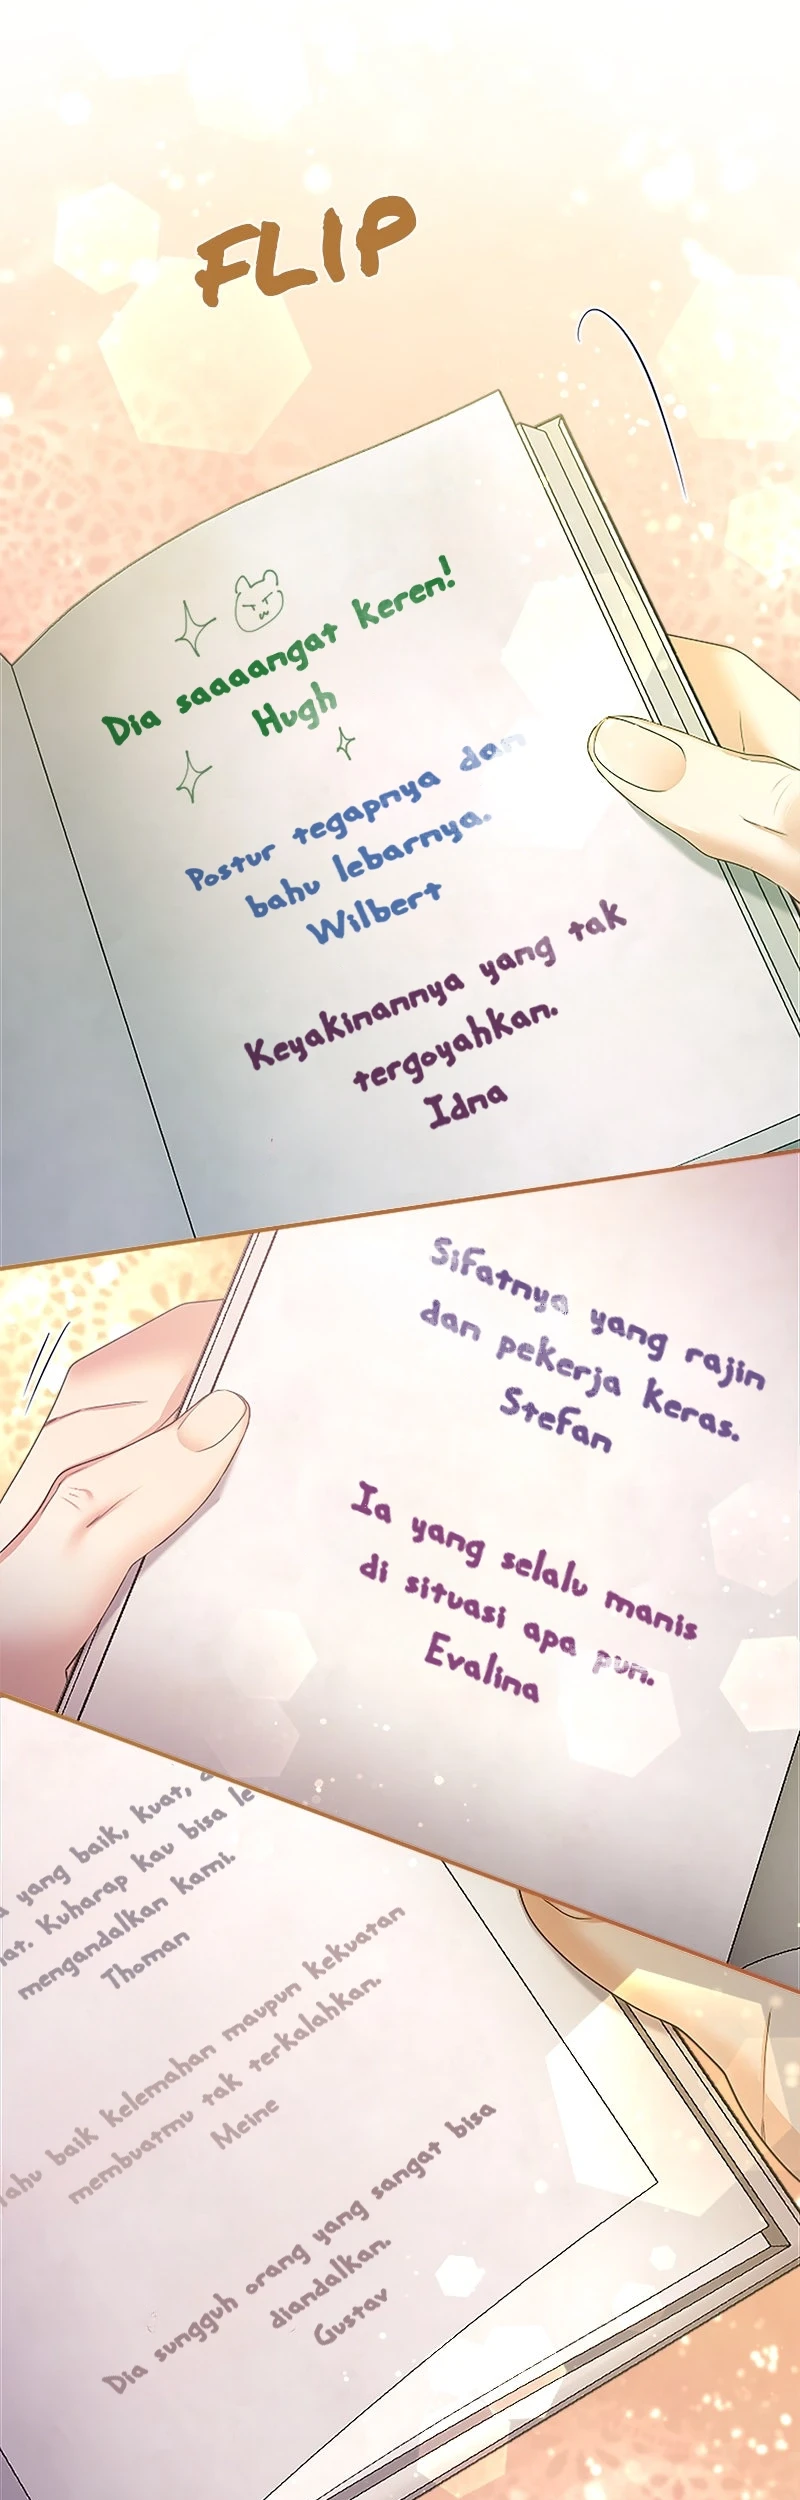 FLIP
Dia saaaangat keren!
Hugh
Postur tegapnya dan
bahu lebarnya.
Wilbert
Keyakinannya yang tak
tergoyahkan.
Idna
Sifatnya yang rajin
dan pekerja keras.
Stefan
Ia yang selalu manis
di situasi apa pun.
Evalina
yang baik, kuat,
Kuharap kau bisa
mengandalkan kami.
Thoman
baik kelemahan maupun kekuatan
membuatmu tak terkalahkan.
Meine
Dia sungguh orang yang sangat bisa
diandalkan.
Gustav